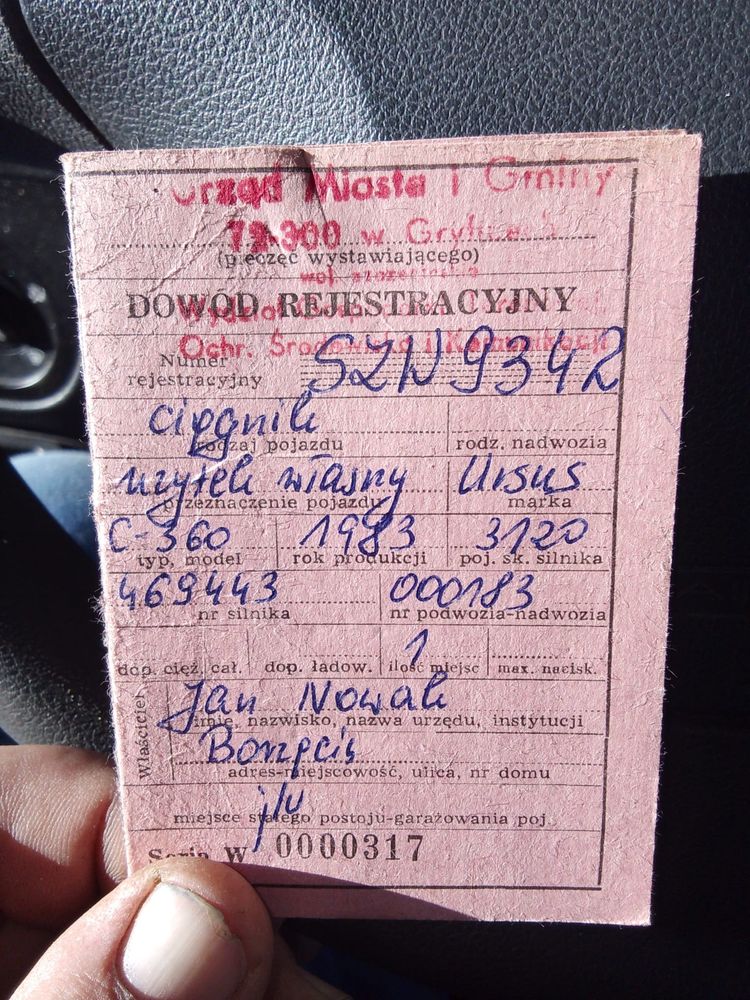 Urząd Miasta i Gminy
72-300 w Gryficach
(pieczęć wystawiającego)
woj. szczecińskie
DOWÓD REJESTRACYJNY
Wydział
Ochr. Środowiska i Komunikacji
Numer
rejestracyjny SZN 9342
ciągnik
rodzaj pojazdu rodz. nadwozia
użytek własny Ursus
przeznaczenie pojazdu marka
C-360 1983 3120
typ, model rok produkcji poj. sk. silnika
469443 000183
nr silnika nr podwozia-nadwozia
1
dop. cięż. cał. dop. ładow. ilość miejsc max. nacisk.
Właściciel
Jan Nowak
imię, nazwisko, nazwa urzędu, instytucji
Borzęcin
adres-miejscowość, ulica, nr domu
j/w
miejsce stałego postoju-garażowania poj.
Seria W 0000317